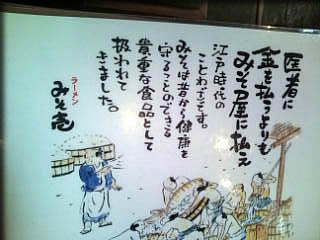 医者に
金を払うよりも
みそ屋に払え
江戸時代の
ことわざです。
みそは昔から健康を
守ることのできる
貴重な食品として
扱われて
きました。
ラーメン
みそ壱